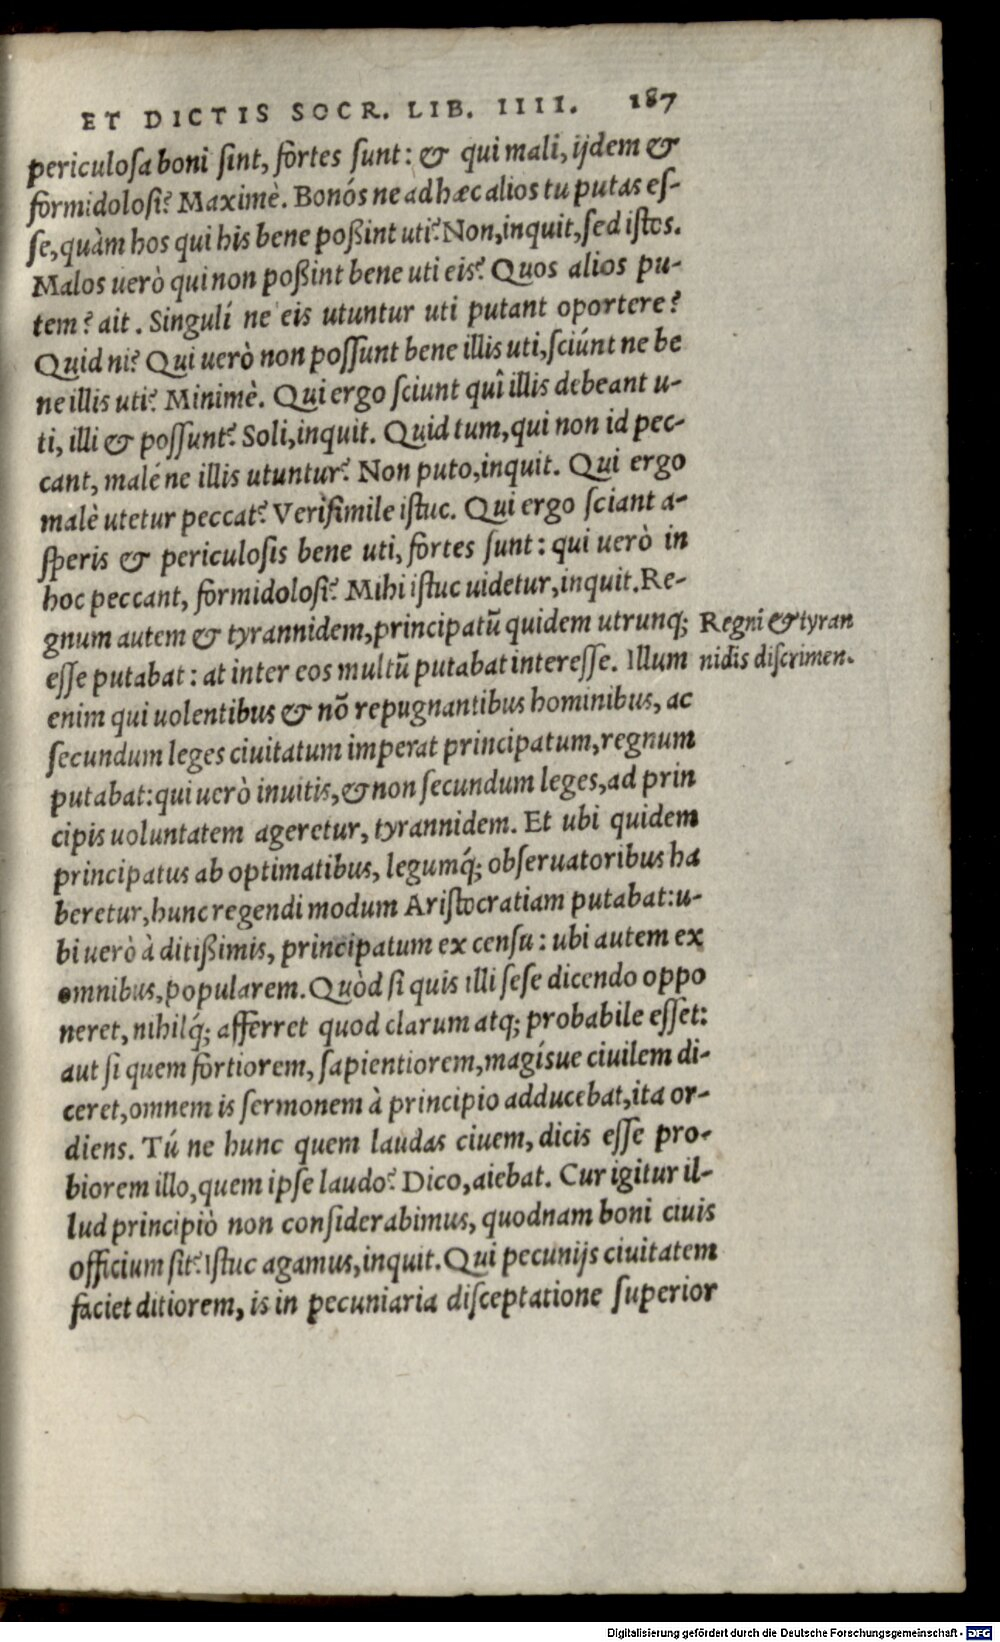 ET DICTIS SOCR. LIB. IIII. 187
periculosa boni sint, fortes sunt: & qui mali, ijdem &
formidolosi? Maximè. Bonós ne ad hæc alios tu putas es-
se, quàm hos qui his bene poßint uti? Non, inquit, sed istos.
Malos uerò qui non poßint bene uti eis? Quos alios pu-
tem? ait. Singulí ne eis utuntur uti putant oportere?
Quid ni? Qui uerò non possunt bene illis uti, sciúnt ne be
ne illis uti? Minimè. Qui ergo sciunt quî illis debeant u-
ti, illi & possunt? Soli, inquit. Quid tum, qui non id pec-
cant, malé ne illis utuntur? Non puto, inquit. Qui ergo
malè utetur peccat? Verisimile istuc. Qui ergo sciant a-
speris & periculosis bene uti, fortes sunt: qui uerò in
hoc peccant, formidolosi? Mihi istuc uidetur, inquit. Re-
gnum autem & tyrannidem, principatū quidem utrunq; Regni & tyran
esse putabat: at inter eos multū putabat interesse. Illum nidis discrimen.
enim qui uolentibus & nō repugnantibus hominibus, ac
secundum leges ciuitatum imperat principatum, regnum
putabat: qui uerò inuitis, & non secundum leges, ad prin
cipis uoluntatem ageretur, tyrannidem. Et ubi quidem
principatus ab optimatibus, legumq́; obseruatoribus ha
beretur, hunc regendi modum Aristocratiam putabat: u-
bi uerò à ditißimis, principatum ex censu: ubi autem ex
omnibus, popularem. Quòd si quis illi sese dicendo oppo
neret, nihilq́; afferret quod clarum atq; probabile esset:
aut si quem fortiorem, sapientiorem, magísue ciuilem di-
ceret, omnem is sermonem à principio adducebat, ita or-
diens. Tú ne hunc quem laudas ciuem, dicis esse pro-
biorem illo, quem ipse laudo? Dico, aiebat. Cur igitur il-
lud principiò non considerabimus, quodnam boni ciuis
officium sit? Istuc agamus, inquit. Qui pecunijs ciuitatem
faciet ditiorem, is in pecuniaria disceptatione superior
Digitalisierung gefördert durch die Deutsche Forschungsgemeinschaft - DFG